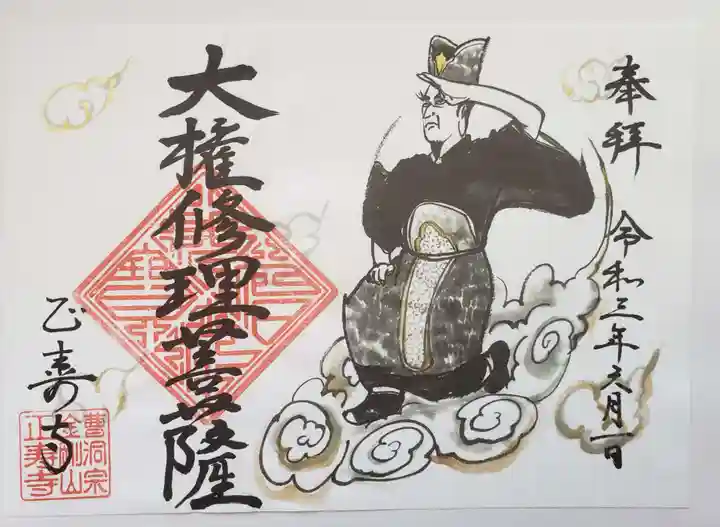 奉拝
令和三年六月一日
大権修理菩薩
正寿寺
曹洞宗
金剛山
正寿寺